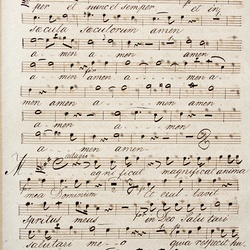 per et nunc et semper et in
sæcula sæculorum amen
amen amen amen a
men amen amen a
a men amen
a men amen
Magnificat magnificat anima
mea Dominum Et exultavit
Spiritus meus in Deo Salutari
salutari meo quia respexit hu